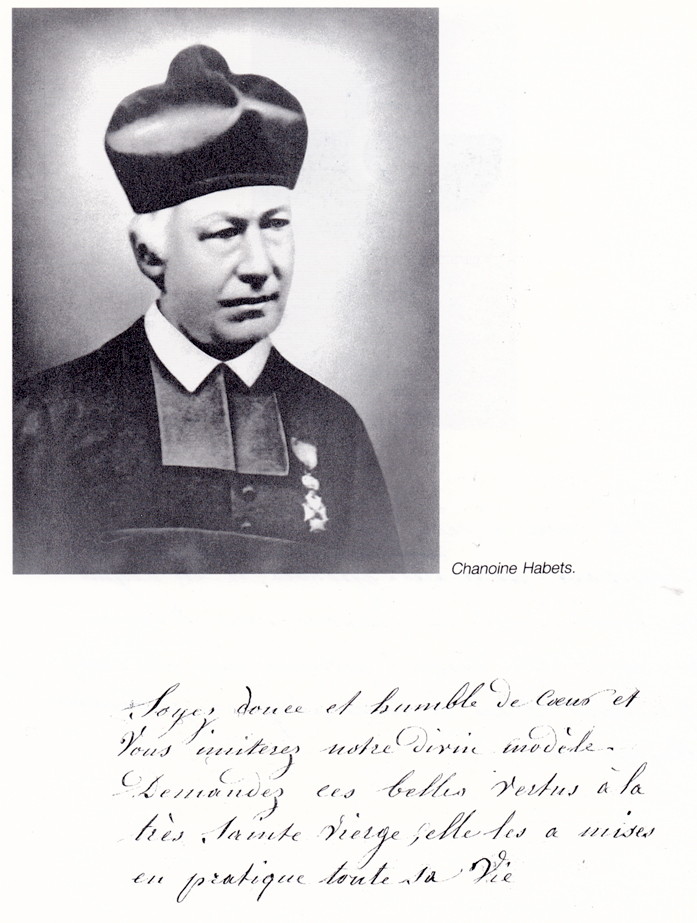 Chanoine Habets.
Soyez douce et humble de Cœur et
Vous imiterez notre Divin modèle.
Demandez ces belles vertus à la
très Sainte Vierge, elle les a mises
en pratique toute sa Vie